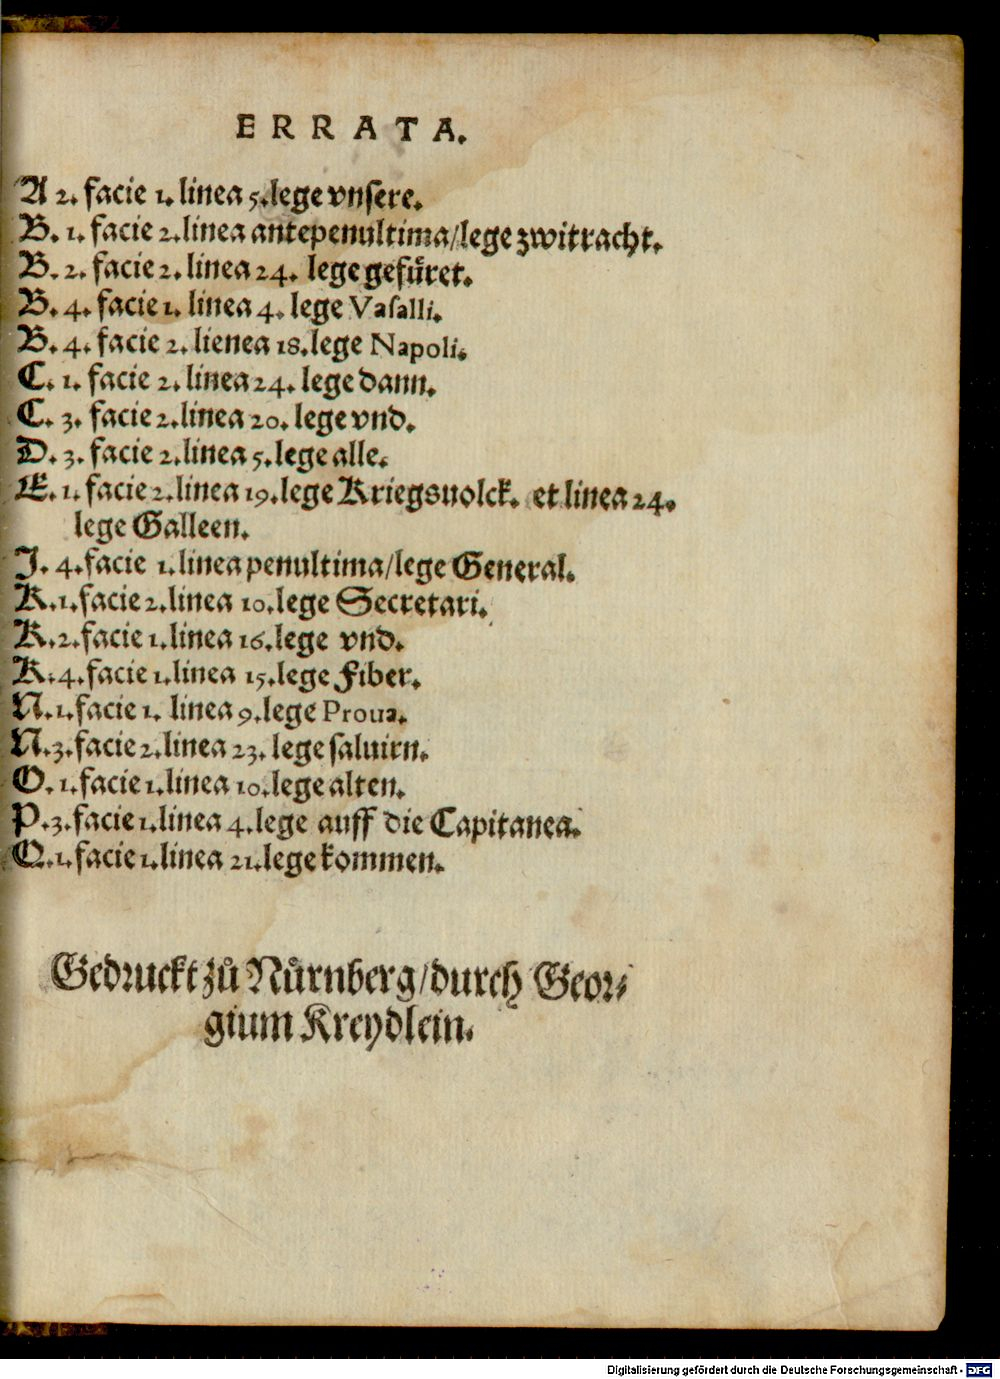 ERRATA.
A 2. facie 1. linea 5. lege vnsere.
B. 1. facie 2. linea antepenultima/lege zwitracht.
B. 2. facie 2. linea 24. lege gefüret.
B. 4. facie 1. linea 4. lege Vasalli.
B. 4. facie 2. lienea 18. lege Napoli.
C. 1. facie 2. linea 24. lege dann.
C. 3. facie 2. linea 20. lege vnd.
D. 3. facie 2. linea 5. lege alle.
E. 1. facie 2. linea 19. lege Kriegsuolck. et linea 24.
lege Galleen.
J. 4. facie 1. linea penultima/lege General.
K. 1. facie 2. linea 10. lege Secretari.
K. 2. facie 1. linea 16. lege vnd.
K. 4. facie 1. linea 15. lege Fiber.
N. 1. facie 1. linea 9. lege Proua.
N. 3. facie 2. linea 23. lege saluirn.
O. 1. facie 1. linea 10. lege alten.
P. 3. facie 1. linea 4. lege auff die Capitanea.
Q. 1. facie 1. linea 21. lege kommen.
Gedruckt zů Nůrnberg/durch Geor⸗
gium Kreydlein.
Digitalisierung gefördert durch die Deutsche Forschungsgemeinschaft - DFG